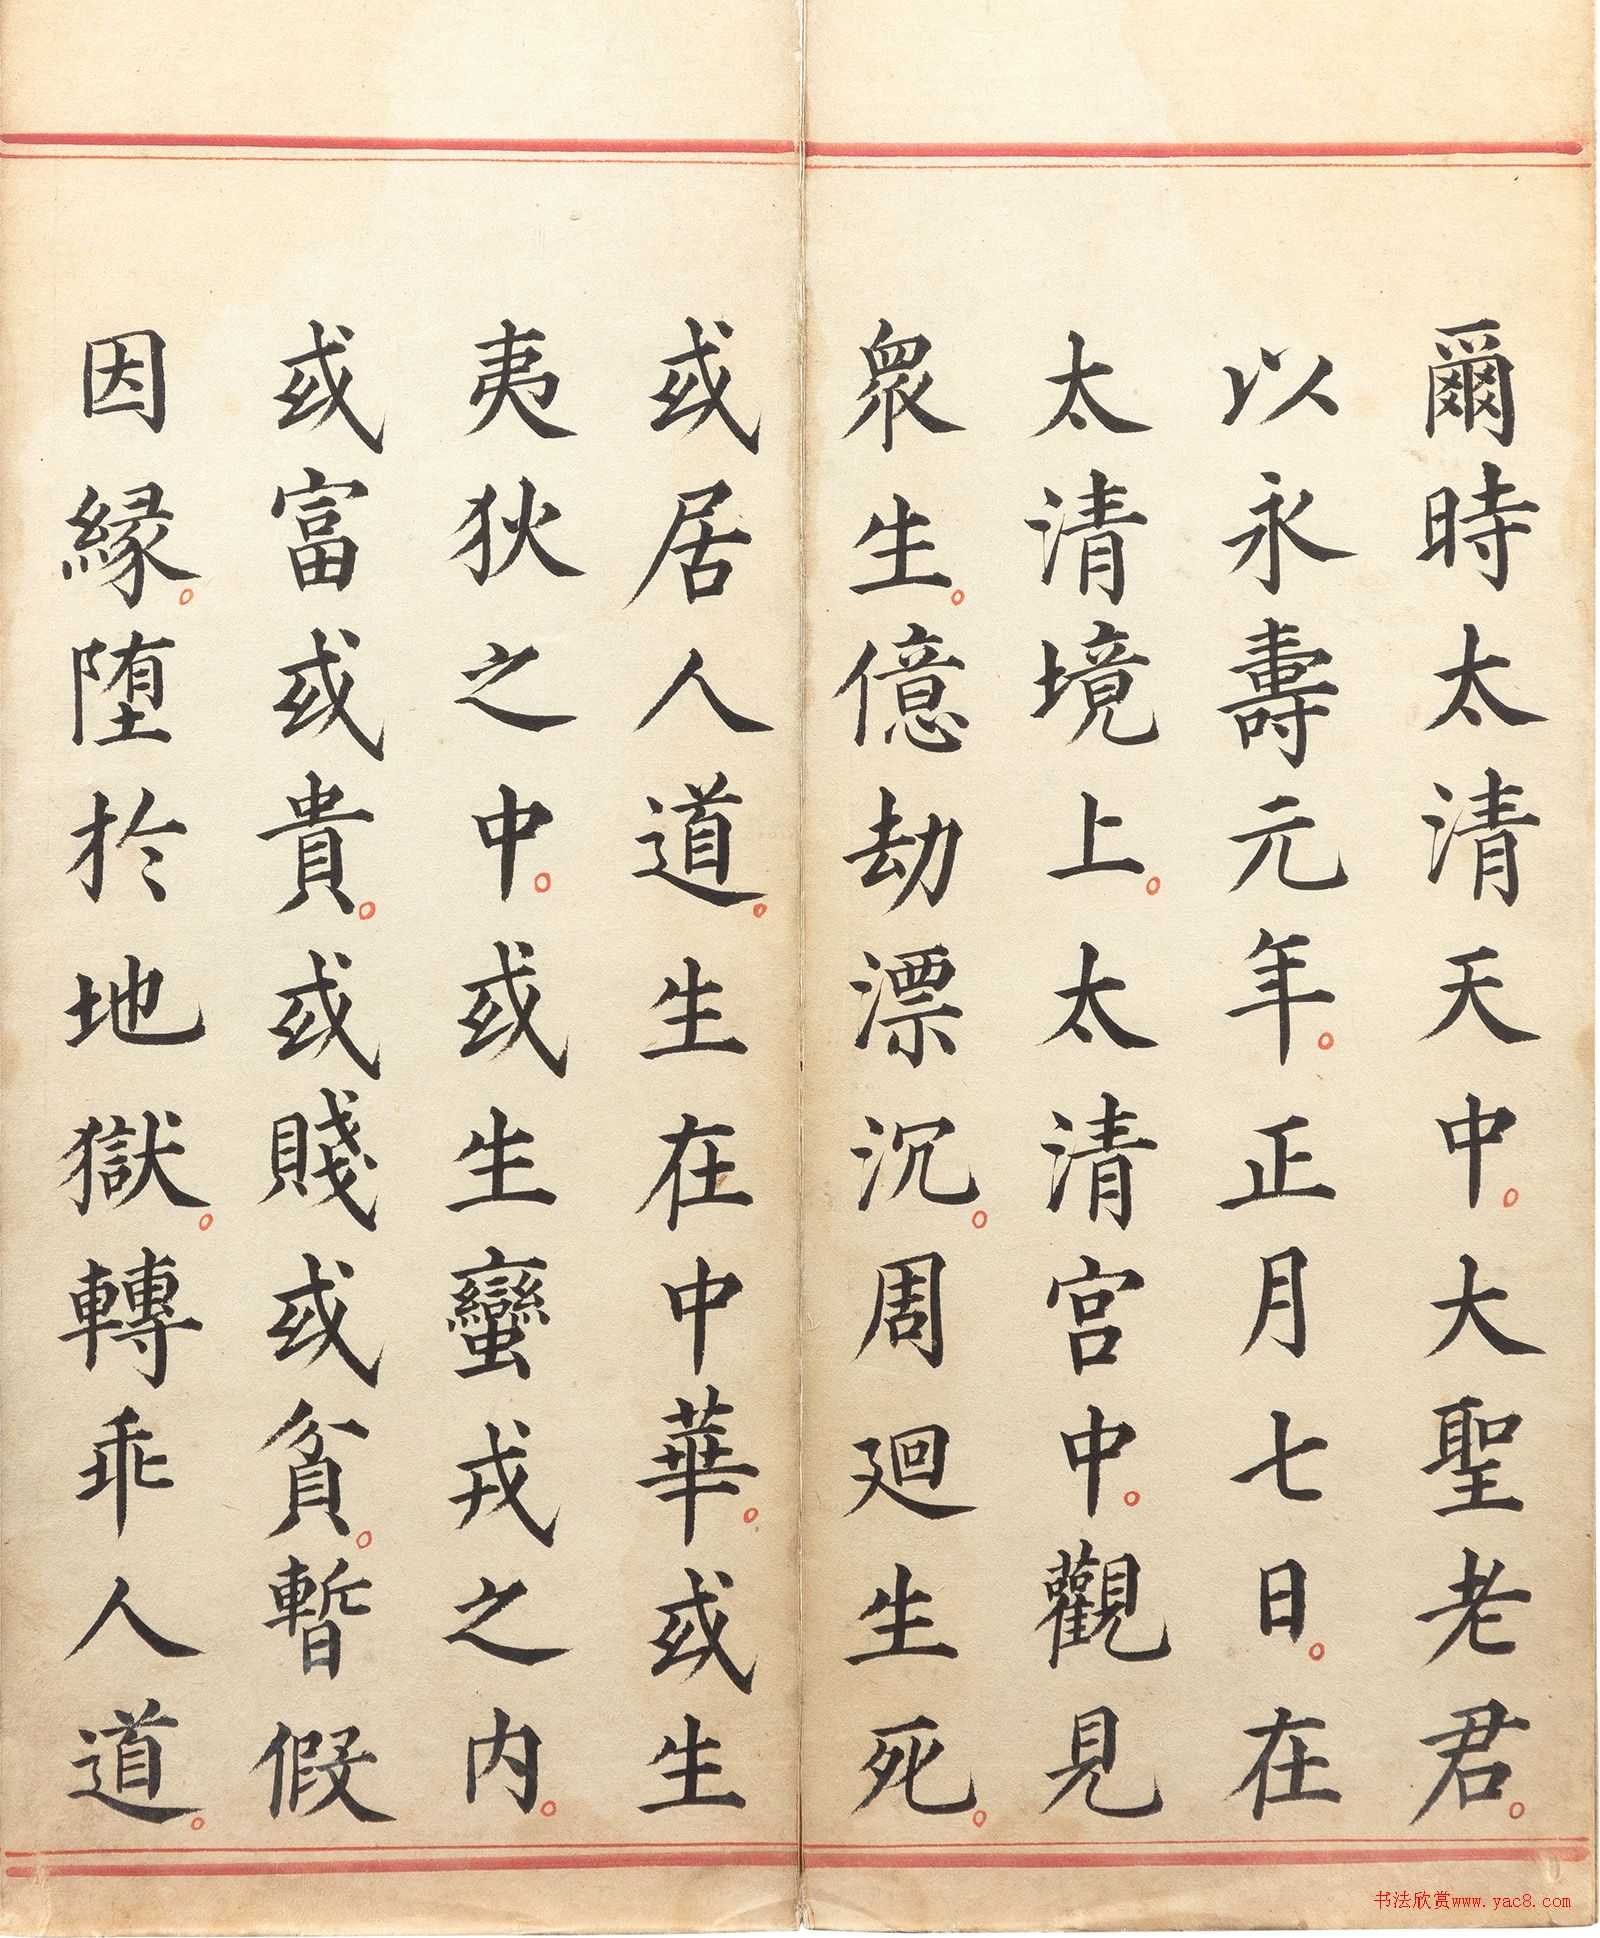 爾時太清天中。大聖老君。
以永壽元年。正月七日。在
太清境上。太清宫中。觀見
衆生。億劫漂沉。周廻生死。
或居人道。生在中華。或生
夷狄之中。或生蠻戎之内。
或富或貴。或賤或貧。暫假
因縁。堕於地獄。轉乖人道。
书法欣赏www.yac8.com